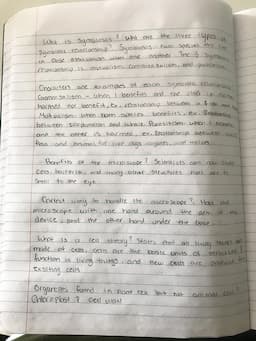 What is Symbiosis? What are the three types of
Symbiotic relationship? Symbiosis - two species that live
in close association with one another. The 3 symbiotic
relationship is mutualism, commensalism, and parasitism.
Characters are examples of each symbiotic relationship
Commensalism - when 1 benefits and the other is neither
harmed nor benefits, ex. relationship between a
Mutualism - when both species benefits, ex. Relationship
between and Parasitism - when 1 benefits
and the other is harmed, ex. Relationship between
fleas and animals
Benefits of the microscope? Scientists can now study
cells, bacteria, and many other structures that are too
small to the eye.
Correct way to handle the microscope? Hold the
microscope with one hand around the arm of the
device, and the other hand under the base.
What is a cell theory? States that all living things are
made of cells, cells are the basic units of structure &
function in living things, and new cells are produced from
existing cells.
Organelles found in plant cell but not animals cell?
Chloroplast & Cell wall